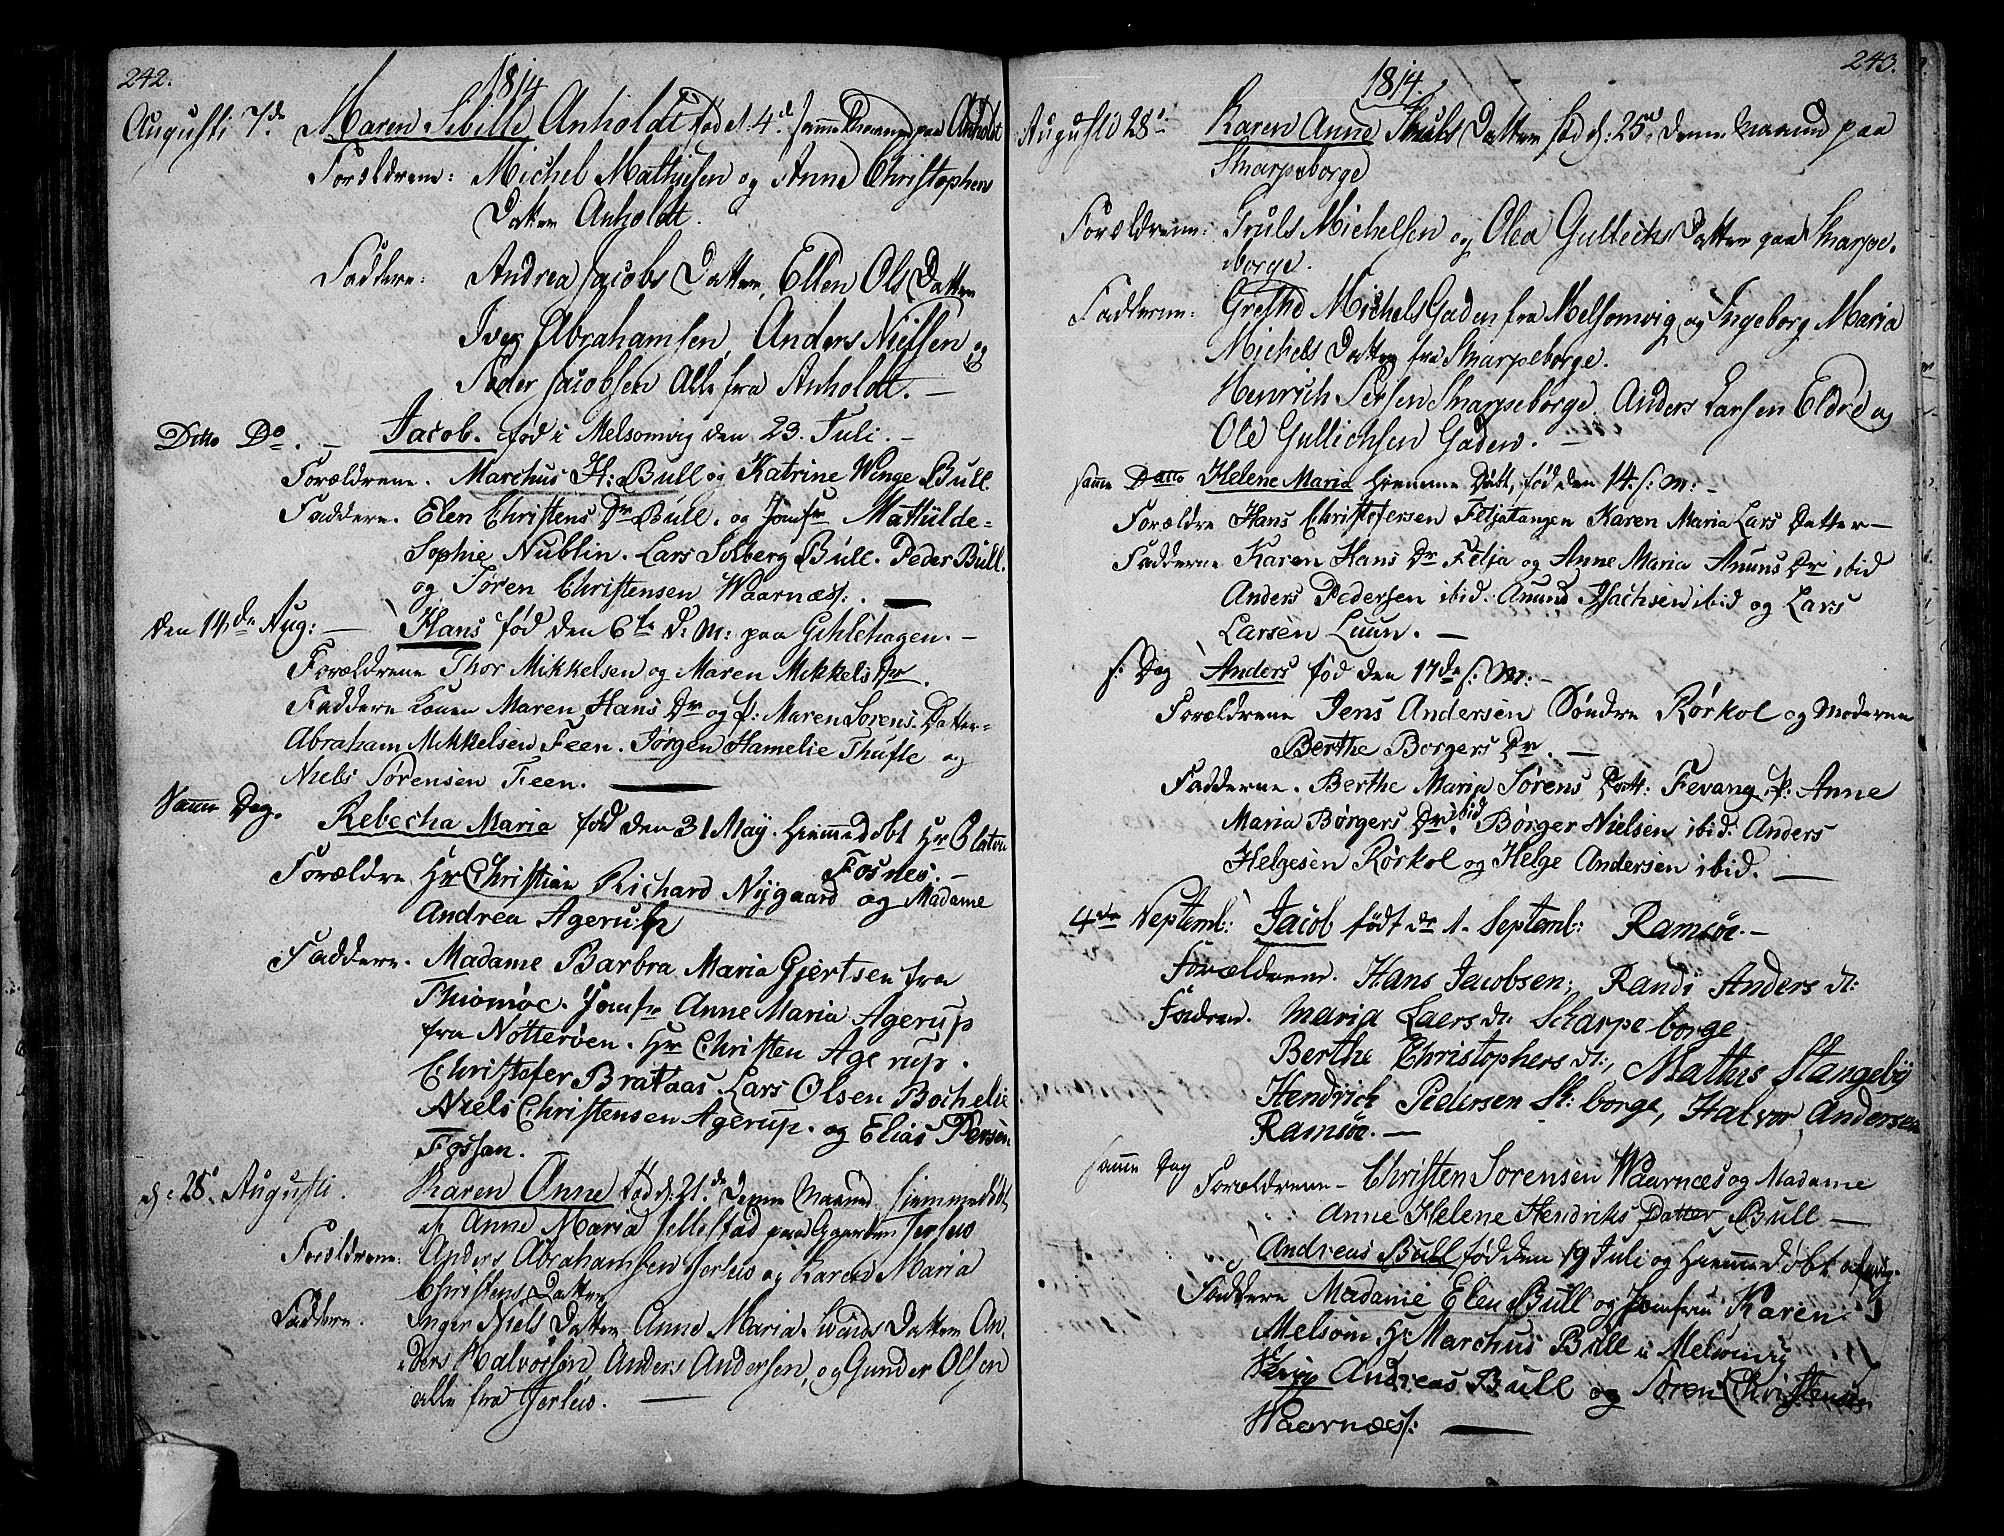 242.
1814
Augusti 7de Maren Sibille Anholdt fød d. 4de samme Maaned paa Anholdt
Forældrene: Michel Mathisen og Anne Christophers
Datter Anholdt.
Faddere: Andrea Jacobs Datter, Ellen Ols Datter
Iver Abrahamsen, Anders Nielsen og
Peder Jacobsen alle fra Anholdt. —
Ditto Do. — Jacob. fød i Melsomvig den 23. Juli. —
Forældrene. Marchus H: Bull og Katrine Winge Bull.
Faddere. Elen Christens Dr Bull. og Jomfr Mathilde=
Sophie Nublin. Lars Solberg Bull. Peder Bull.
og Søren Christensen Waarnæs:. —
den 14de Aug: — Hans fød den 6te d: M: paa Gihlehagen. —
Forældrene Thor Mikkelsen og Maren Mikkels Dr.
Faddere Konen Maren Hans Dr og P: Maren Sorens Datter=
Abraham Mikkelsen Feen. Jørgen Hamelie Thufte og
Niels Sørensen Feen. —
Samme Dag. Rebecha Maria fød den 31 May. Hiemmedøbt Hr
Fosnes. —
Forældre Hr Christian Richard Nygaard og Madame
Andrea Agerup
Faddere. Madame Barbra Maria Gjertsen fra
Thiomøe. Jomfr Anne Maria Agerup
fra Notterøen. Hr Christen Agerup.
Christofer Brataas. Lars Olsen Bochelie
Niels Christensen Agerup. og Elias Persen
Fossan.
d: 28. Augusti. Karen Anne fød d. 21de denne Maaned hiemmedøbt
af Anne Maria paa Gaarden
Forældrene: Anders Abrahamsen og Karen Maria
Christens Datter
Faddere. Inger Niels Datter Anne Maria Datter An-
ders Halvorsen, Anders Andersen, og Gunder Olsen
alle fra —
243.
1814.
Augusti 28. Karen Anne Truls Datter fød d. 25de denne Maaned paa
Skarpeborge
Forældrene: Truls Michelsen og Olea Gullichs Datter paa Skarpe-
borge.
Fadderne: Grethe Michels Gaden fra Melsomvig og Ingeborg Maria
Michels Datter fra Skarpeborge.
Henrich Persen Skarpeborge. Anders Larsen Eldre og
Ole Gullichsen Gaden. —
samme Datto Helene Maria hiemme Døbt, fød den 14. s: M: —
Forældre Hans Christofersen Feljatangen Karen Maria Lars Datter —
Fadderne Karen Hans Dr Felja og Anne Maria Anuns Dr ibid
Anders Pedersen ibid. Anund Isachsen ibid og Lars
Larsen Luun. —
s: Dag Anders fød den 17de s: M: —
Forældrene Jens Andersen Søndre Rørkol og Moderen
Berthe Borgers Dr. —
Fadderne. Berthe Maria Sørens Datt: Fevang. P: Anne
Maria Børgers Dr ibid. Børger Nielsen ibid. Anders
Helgesen Rørkol og Helge Andersen ibid. —
4de Septembl: Jacob født de 1. Septembl: Ramsøe. —
Forældrene. Hans Jacobsen; Randi Anders dt:
Fadrene. Maria Laers dt: Scharpeborge
Berthe Christophers dt:, Mathis Stangeby
Hendrick Pedersen Sk: borge, Halvor Andersen
Ramsøe. —
samme Dag Forældrene — Christen Sorensen Waarnæs og Madame
Anne Helene Hendriks Datter Bull —
Andreas Bull fød den 19 Juli og Hiemmedøbt
Faddere Madame Elen Bull og Jomfru Karen
Melsom Hr Marchus Bull i Melsomvig
Andreas Bull og Søren Christensen
Waarnæs: —